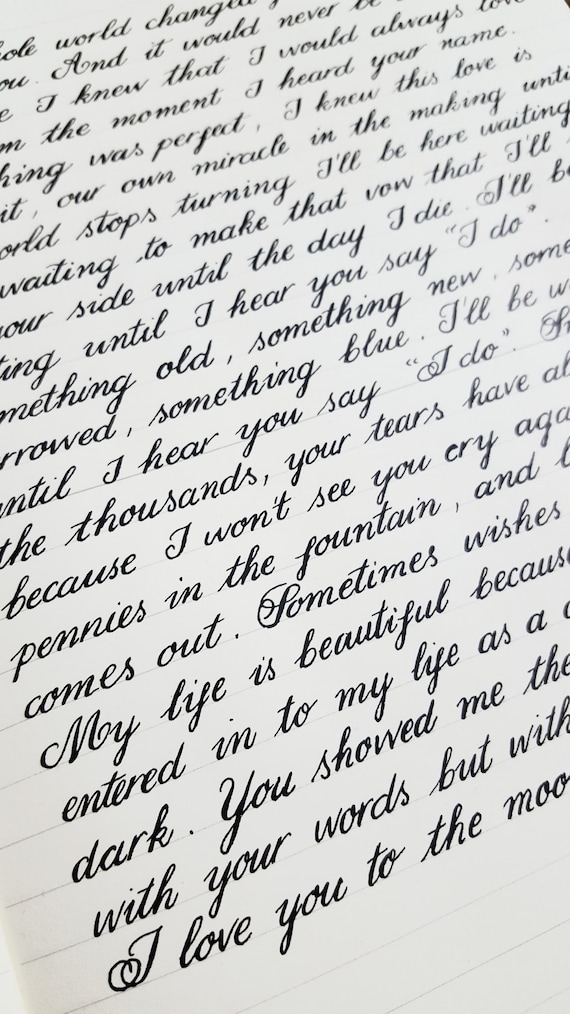 world changed
And it would never be
I knew that I would always love
the moment I heard your name.
was perfect, I knew this love is
it, our own miracle in the making until
stops turning I'll be here waiting
waiting to make that vow that I'll
your side until the day I die. I'll be
until I hear you say "I do".
old, something new, some
something blue. I'll be
until I hear you say "I do".
the thousands, your tears have
because I won't see you cry
pennies in the fountain, and
comes out. Sometimes wishes
My life is beautiful because
entered in to my life as a
dark. You showed me the
with your words but with
I love you to the